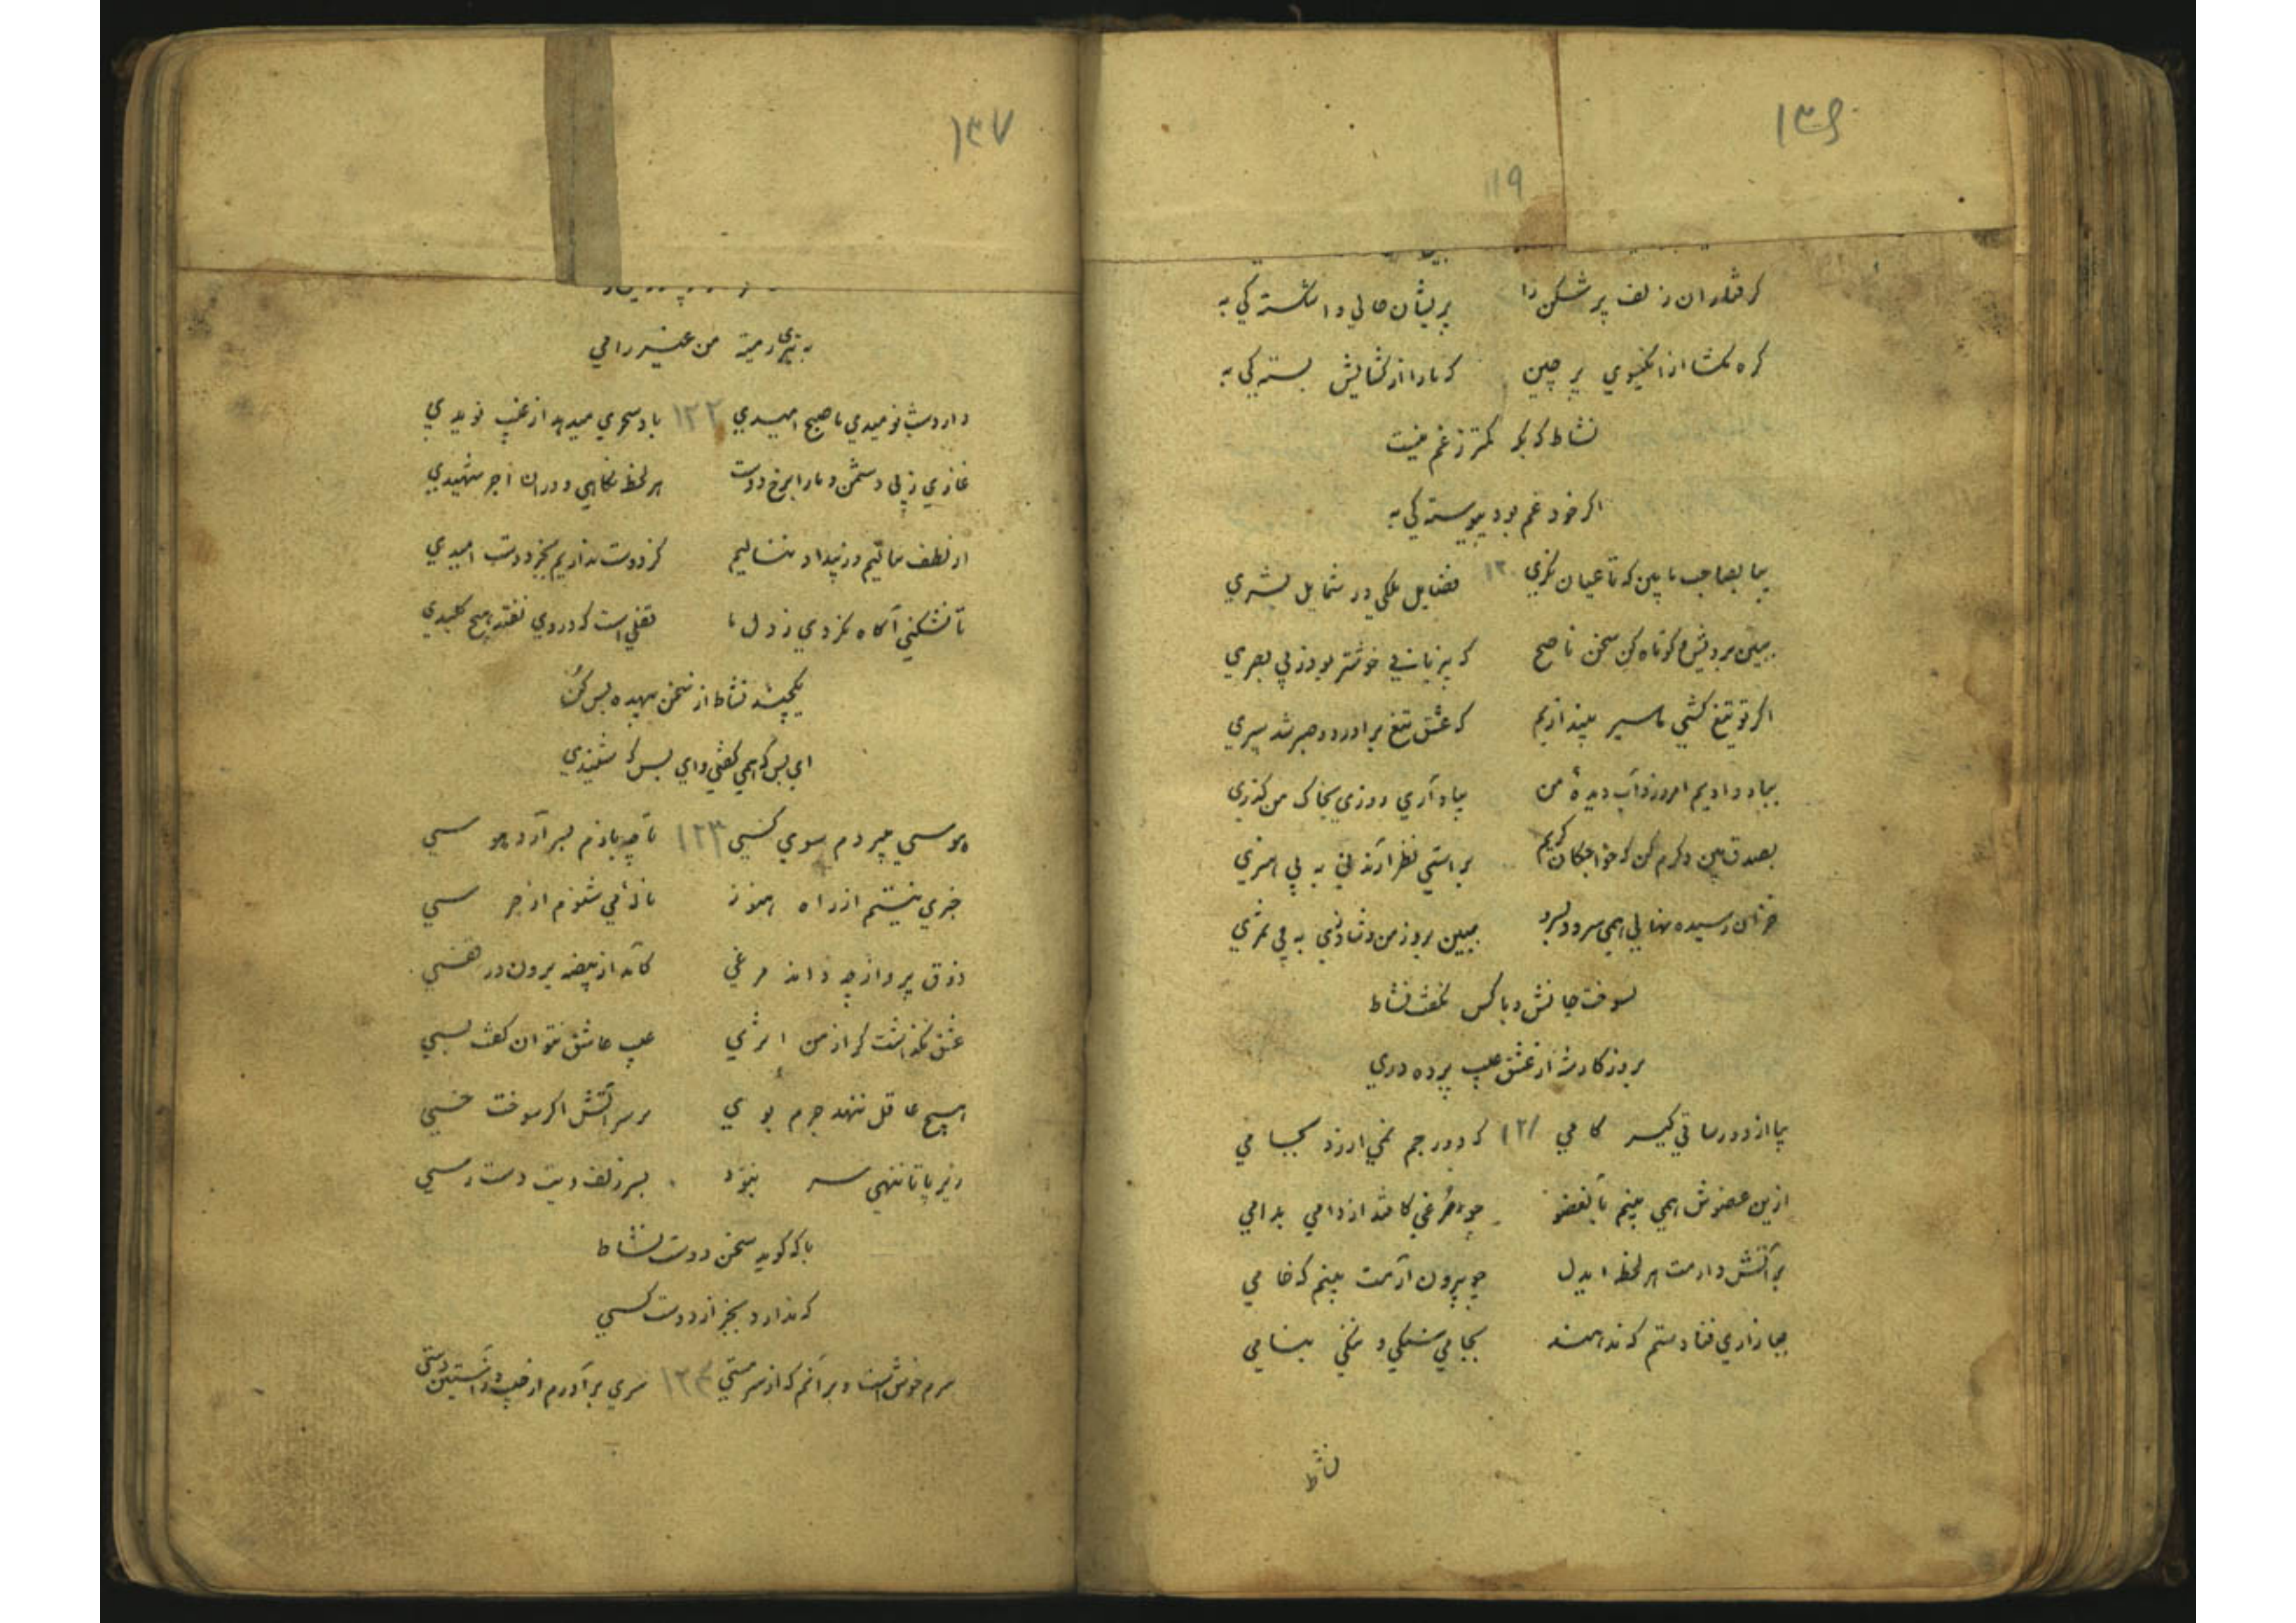 ۱۳۶
119
گرفتاران زلف پر شکن را پریشان حالی و اشکسته گی به
گره مگشا از آن گیسوی پر چین که ما را از گشایش بسته گی به
نشاط کر کمتر ز غم نیست
اگر خود غم بود پیوسته گی به
بیا بصاحب ما بین که تا عیان نگری ۱۲۰ فضایل ملکی در شمایل بشری
ببین برویش و کوتاه کن سخن ناصح که بی زبانی خوشتر بود ز بی بصری
اگر تو تیغ کشی ما سپر بیندازیم که عشق تیغ برآورد و صبر شد سپری
بباد دادیم امروز و آب دیده من بیاد آری روزی بخاک من گذری
بصدق بین و کرم کن که خواجگان کریم براستی نظر آرند نی به بی هنری
خزان رسیده نهالی همی سرود بسرو ببین بروز من و شادزی به بی ثمری
بسوخت جانش و با کس نگفت نشاط
بروزگار شد از عشق عیب پرده دری
بیا از دور ساقی گیر کامی ۱۲۱ که دور جم نمی ارزد بجامی
ازین عضوش همی بینم بآنعضو چو مرغی کافتد از دامی بدامی
بر آتش دارمت هر لحظه ایدل چو بیرون آرمت بینم که خامی
ببازاری فتادستم که ندهند بجامی سنگی و ننگی بنامی
نشاط
۱۳۷
من عنبر رامی
دارد شب نومیدی ما صبح امیدی ۱۲۲ باد سحری میدهد از غیب نویدی
غازی ز پی دشمن و ما را برخ دوست هر لحظه نگاهی و در آن اجر شهیدی
از لطف نمالیم و ز بیداد ننالیم کز دوست نداریم بجز دوست امیدی
تا نشکنی آگاه نگردی ز دل ما قفلی است که در وی نفتد هیچ کلیدی
یکچند نشاط از سخن بیهده بس کن
ای بس که همی گفتی و ای بس که شنیدی
هوسی میبردم سوی کسی ۱۲۳ تا چه بازم بسر آرد هوسی
خبری نیستم از راه هنوز ناله ای می شنوم از جرسی
ذوق پرواز چه داند مرغی کآمد از بیضه برون در قفسی
عشق نگذاشت گر از من اثری عیب عاشق نتوان گفت بسی
هیچ عاقل ننهد جرم بوی بر سر آتش اگر سوخت خسی
زیر پا تا ننهی سر نبود بسر زلف ویت دست رسی
با که گوید سخن دوست نشاط
که ندارد بجز از دوست کسی
سرم خوش است و برآنم که از سر مستی ۱۲۴ سری برآورم از جیب و ز آستین دستی